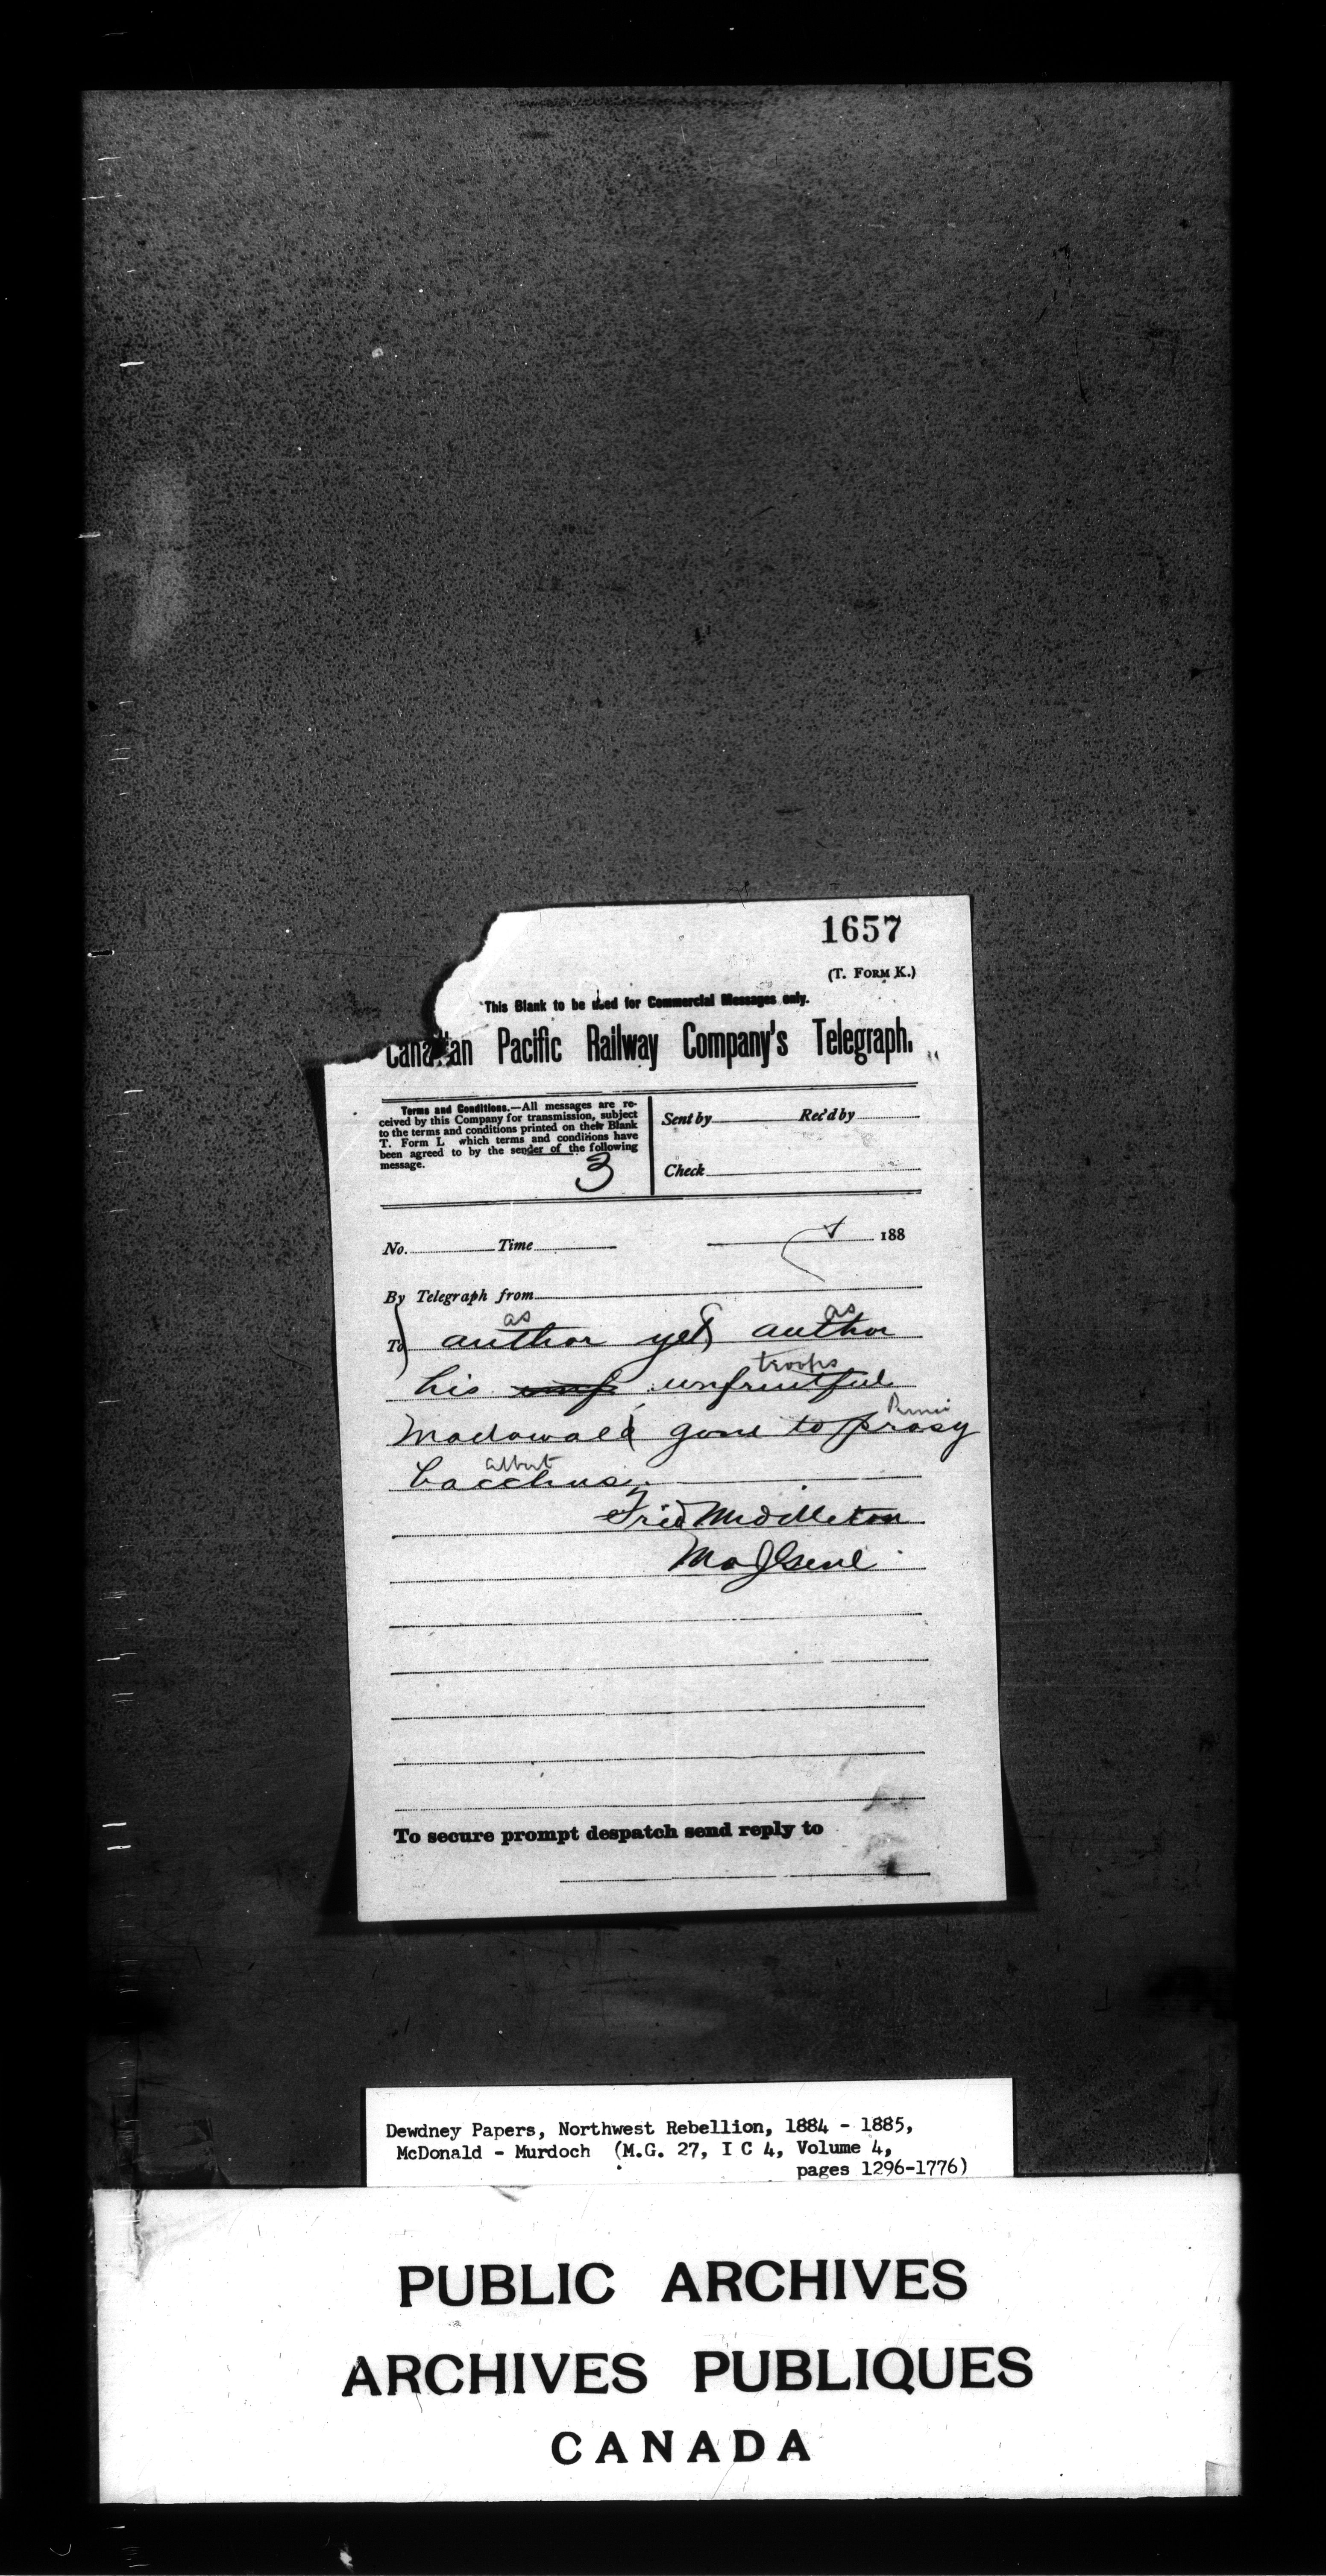 1657
(T. FORM K.)
This Blank to be used for Commercial Messages only.
Canadian Pacific Railway Company's Telegraph.
Terms and Conditions.—All messages are re-
ceived by this Company for transmission, subject
to the terms and conditions printed on their Blank
T. Form L which terms and conditions have
been agreed to by the sender of the following
message.
3
Sent by Rec'd by
Check
No. Time 188
By Telegraph from
as as
To author yet author
troops
his unfruitful
Prince
Macdowall gone to prosy
albert
bacchus
Fred Middleton
Maj Genl
To secure prompt despatch send reply to
Dewdney Papers, Northwest Rebellion, 1884 - 1885,
McDonald - Murdoch (M.G. 27, I C 4, Volume 4,
pages 1296-1776)
PUBLIC ARCHIVES
ARCHIVES PUBLIQUES
CANADA